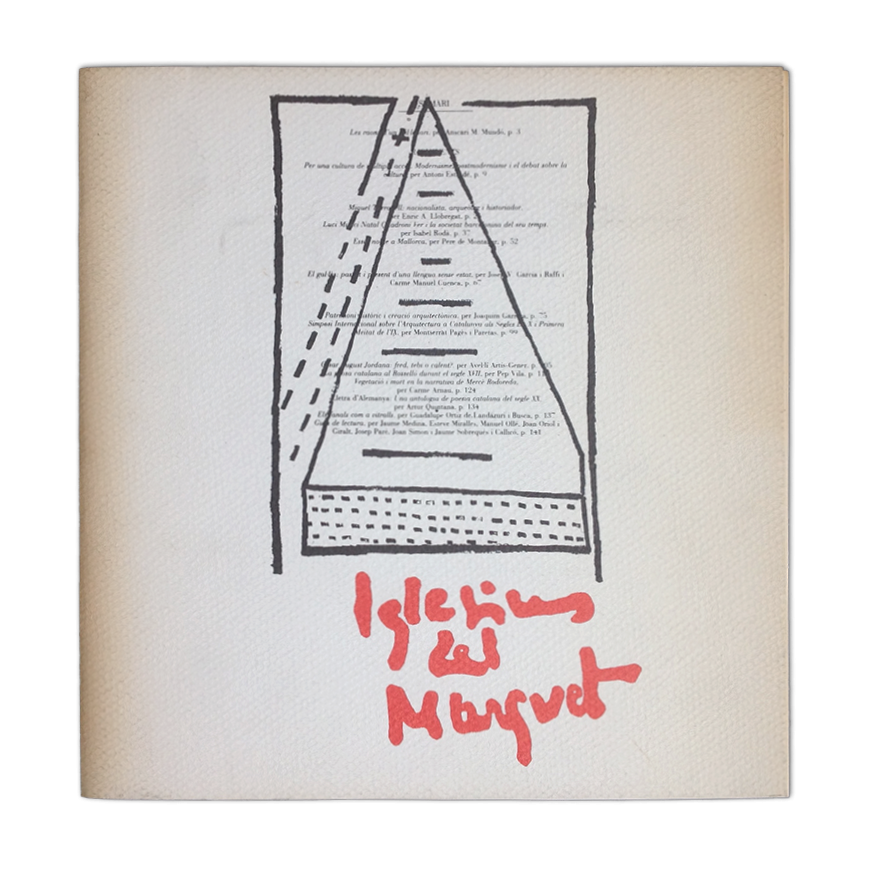 Les raons d'un per Anscari M. Mundó, p. 3
Per una cultura de accés. Modernisme, postmodernisme i el debat sobre la
cultura, per Antoni p. 9
Miquel nacionalista, arquitecte i historiador,
per Enric A. Llobregat, p.
Luci Natal Quadroni i la societat barcelonina del seu temps,
per Isabel Rodà, p. 37
a Mallorca, per Pere de p. 52
El passat i present d'una llengua sense estat, per W. Garcia i Raffi i
Carme Manuel Cuenca, p. 67
Patrimoni històric i creació arquitectònica, per Joaquim p. 75
Simposi Internacional sobre l'Arquitectura a Catalunya als Segles X i Primera
Meitat de l'XI, per Montserrat Pagès i Paretas, p. 99
August Jordana: fred, tebi o calent?, per Avel·lí Artís-Gener, p. 105
catalana al Rosselló durant el segle XVII, per Pep Vila, p.
Vegetació i mort en la narrativa de Mercè Rodoreda,
per Carme Arnau, p. 124
Lletra d'Alemanya: Una antologia de poesia catalana del segle XX,
per Artur Quintana, p. 134
Els com a vitralls, per Guadalupe Ortiz de Landázuri i Busca, p. 137
de lectura, per Jaume Medina, Esteve Miralles, Manuel Ollé, Joan Oriol i
Giralt, Josep Paré, Joan Simon i Jaume Sobrequés i Callicó, p. 141
Iglesias
del
Marquet